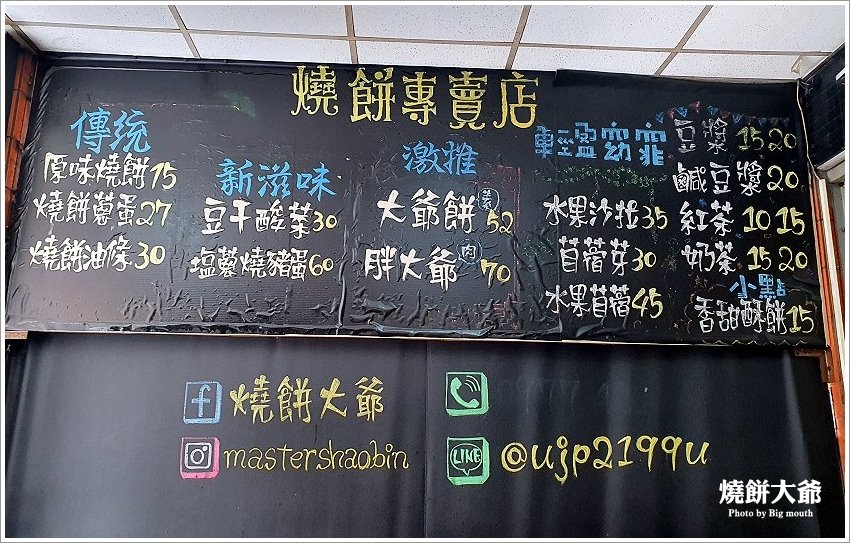 燒餅專賣店
傳统
原味燒餅 15
燒餅蔥蛋 27
燒餅油條 30
新滋味
豆干酸菜 30
塩蔥燒豬蛋 60
激推
大爺餅 52
胖大爺 肉 70
輕盈窈窕
水果沙拉 35
苜蓿芽 30
水果苜蓿 45
豆漿 15 20
鹹豆漿 20
紅茶 10 15
奶茶 15 20
小點
香甜酥餅 15
燒餅大爺
mastershaobin
LINE @ujp2199u
燒餅大爺
Photo by Big mouth